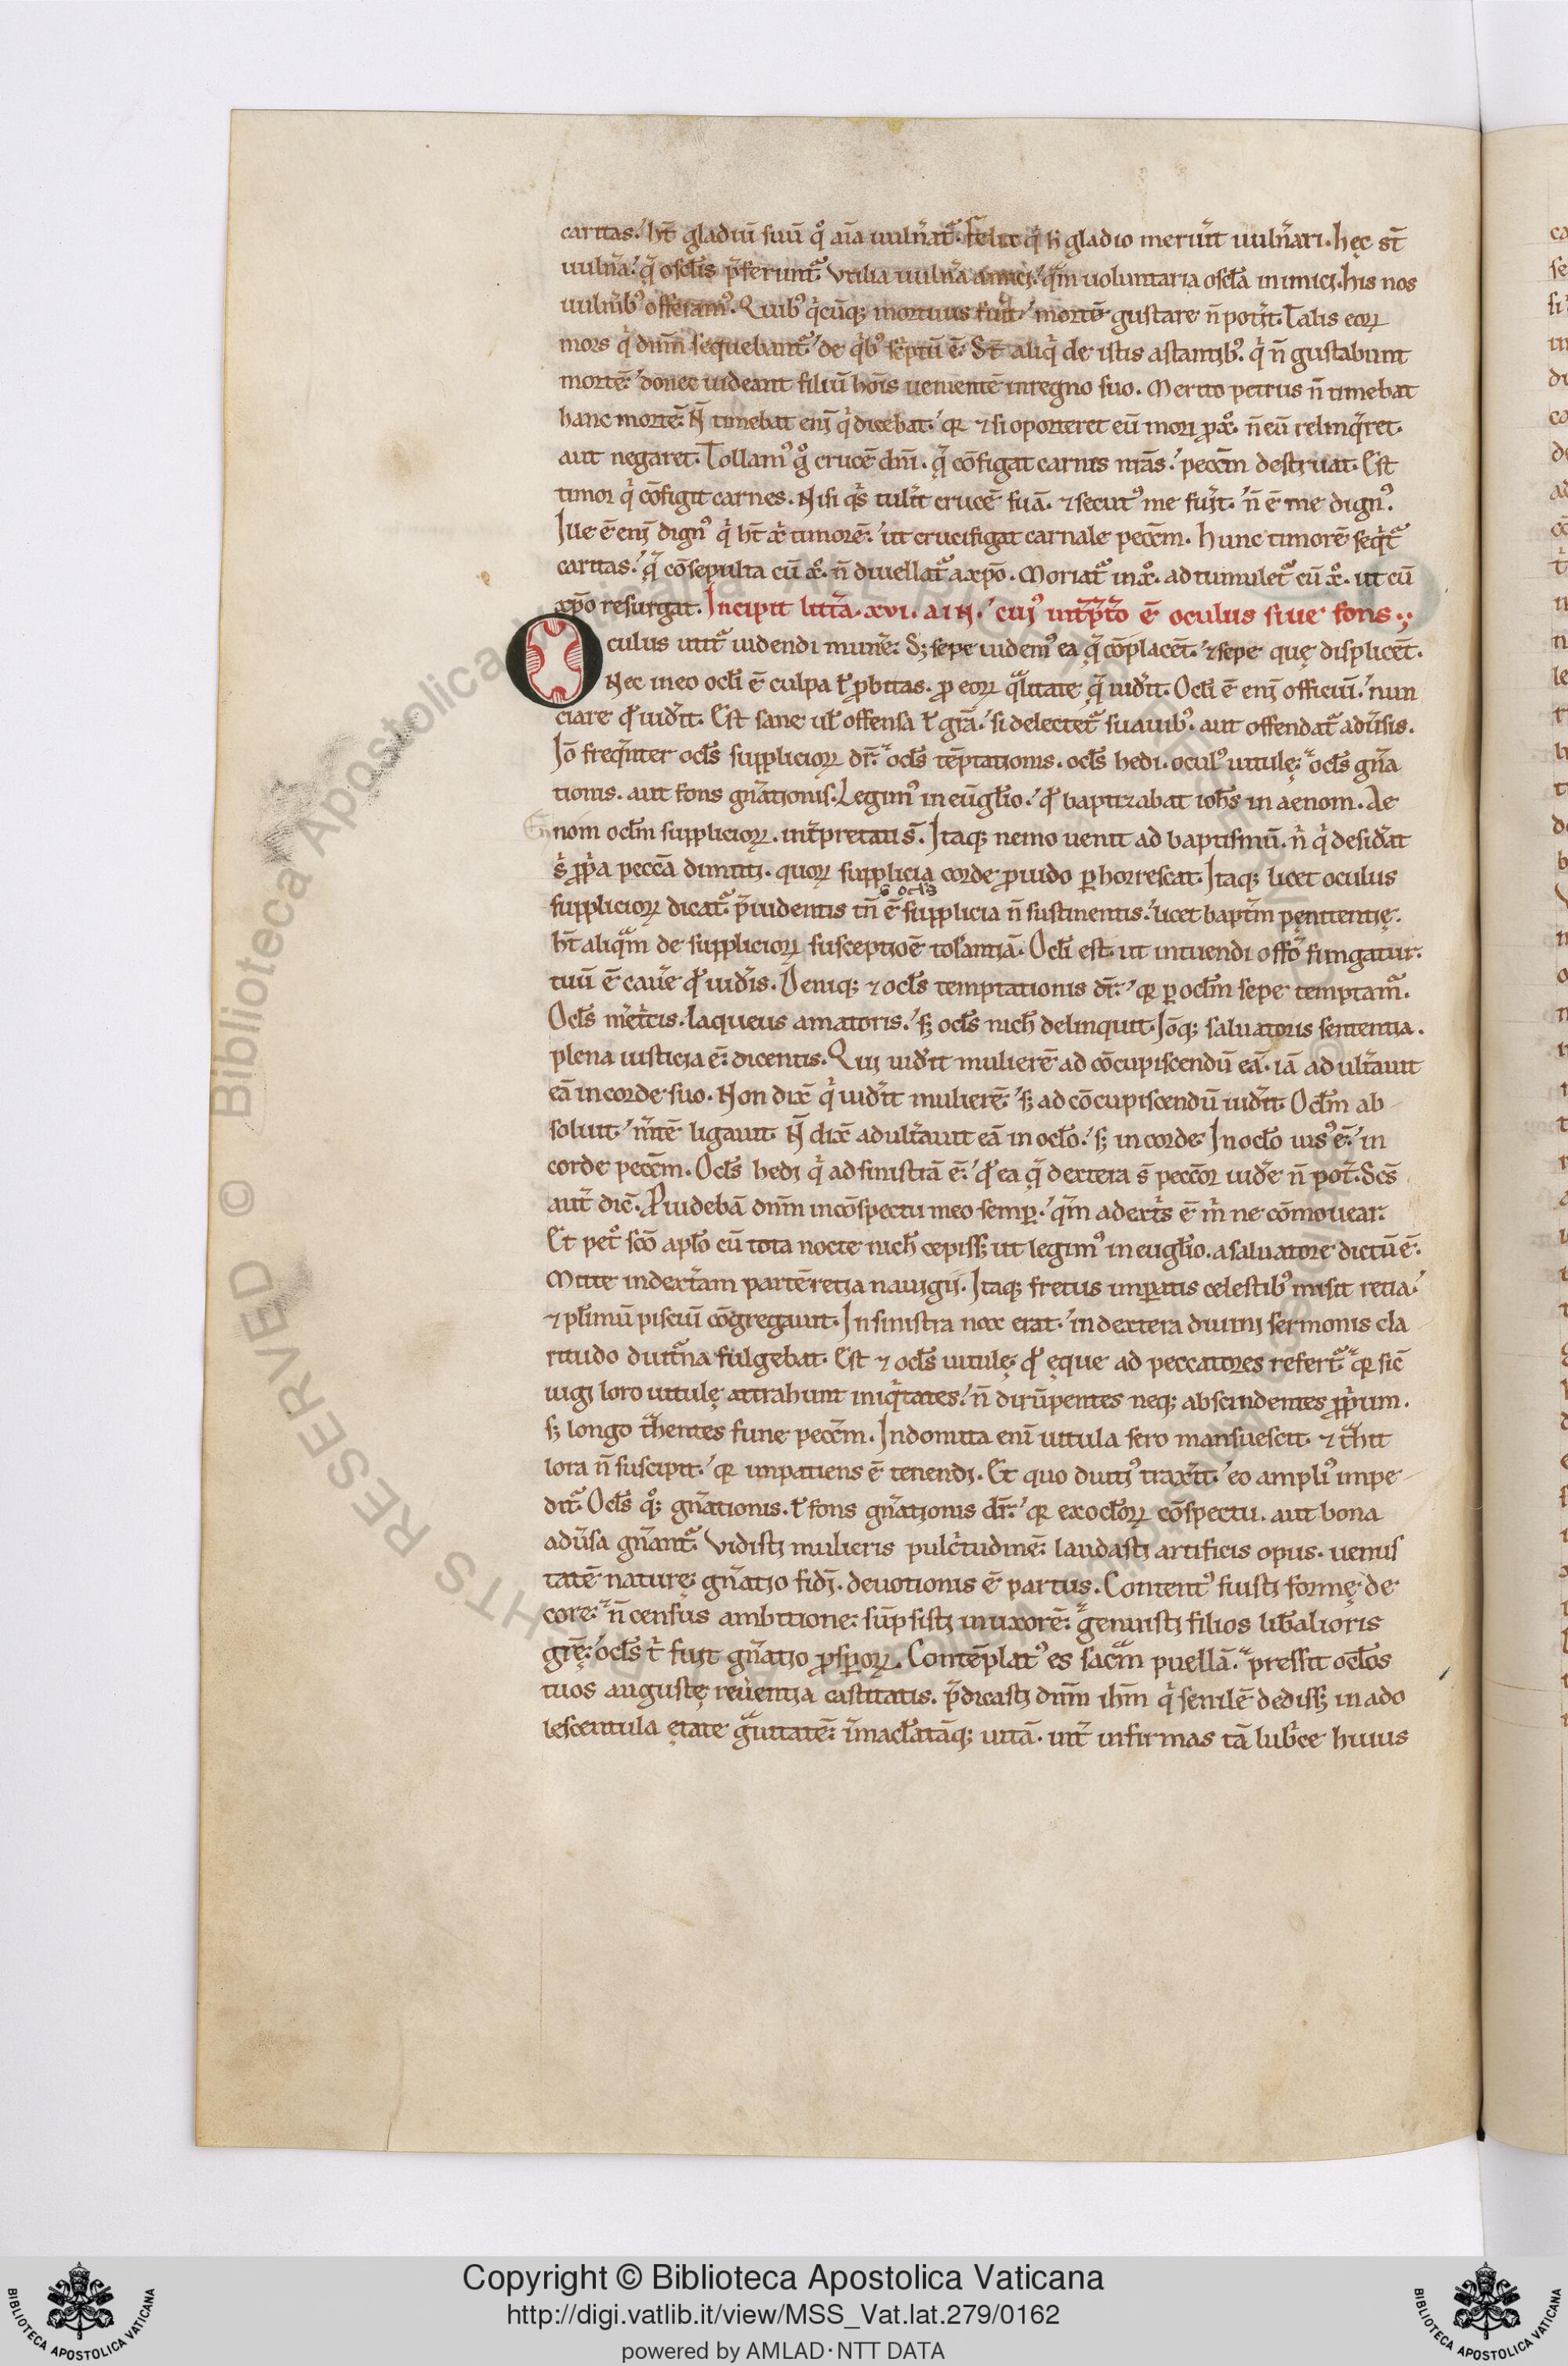 caritas. ht̄ gladiū suū qͦ aīa uuln̄at᷑. Felix q̄ h gladio meruit uuln̄ari. hęc st̄
uuln̄a. q̄ oscl̄is p̄ferunt᷑. Vtilia uuln̄a amici. qm̄ uoluntaria oscl̄a inimici. his nos
uuln̄ib⁹ offeram⁹. Quib⁹ q̇cūq; mortuus fuit. mortē gustare n̄ pot̄it. Talis eoꝝ
mors q̇ dn̄m sequebant᷑. de q̇b⁹ sc̄ptū ē. St̄ aliq̇ de istis astantib⁹. q̇ n̄ gustabunt
mortē. donec uideant filiū hōis uenientē in regno suo. Merito petrus n̄ timebat
hanc mortē. N̄ timebat eni q̇ dicebat. qr ⁊ si oporteret eū mori ꝓ xͦ. n̄ eū relinq̇ret
aut negaret. Tollam⁹ gͦ crucē dn̄i. q̄ cōfigat carnis nr̄as. pecc̄m destruat. Est
timor q̇ cōfigit carnes. Nisi qs̄ tulit crucē suā. ⁊ secut⁹ me fuit. n̄ ē me dign⁹.
Ille ē eni dign⁹ q̇ ht̄ xi timorē. ut crucifigat carnale pecc̄m. hunc timorē seq̇t᷑
caritas. q̄ cōsepulta cū xͦ. n̄ diuellat᷑ a xp̄o. Moriat᷑ in xͦ. ad tumulet᷑ cū xͦ. ut cū
xp̄o resurgat. Incipit litt̄a. xvi. AIN. cui⁹ int̄p̄tō ē oculus siue fons.
Oculus utit᷑ uidendi munē. S; sepe uidem⁹ ea q̄ cōplacēt. ⁊ sepe quę displicēt.
Nec in eo ocl̄i ē culpa ł ꝓbitas. ꝓ eoꝝ qͣlitate q̄ uid̄it. Ocl̄i ē eni officiū. nun
ciare qd̄ uid̄it. Est sane ul̄ offensa ł gr̄a. si delectet᷑ suauib⁹. aut offendat᷑ adūsis.
Iō freq̄nter ocl̄s supplicioꝝ dr̄. ocl̄s tēptationis. ocl̄s hedi. ocul⁹ uitulę. ocl̄s gn̄a
tionis. aut fons gn̄ationis. Legim⁹ in eūgl̄io. qd̄ baptizabat ioh̄s in aenom. Ae
nom ocl̄m supplicioꝝ. int̄pretati s̄. Itaq; nemo uenit ad baptismū. n̄ q̇ desid̄at
s̄ ꝓp̄a peccā dimitti. quoꝝ supplicia corde ꝓuido ꝑhorrescat. Itaq; licet oculus
supplicioꝝ dicat᷑ p̄uidentis tn̄ ē supplicia n̄ sustinentis. licet bapt̄m pęnitentię.
ht̄ aliqͣm de supplicioꝝ susceptioē tol̄antiā. Ocl̄i est. ut intuendi offō fungatur.
tuū ē cauē qd̄ uid̄is. Deniq; ⁊ ocl̄s temptationis dr̄. qr ꝑ ocl̄m sepe temptam᷑.
Ocl̄s mēt̄cis. laqueus amatoris. s; ocl̄s nich̄ delinquit. Iōq; saluatoris sententia.
plena iusticia ē. dicentis. Qui uid̄it mulierē ad cōcupiscendū eā. iā adult̄auit
eā in corde suo. Non dix̄ q̇ uid̄it mulierē. s; ad cōcupiscendū uid̄it. Ocl̄m ab
soluit. mn̄tē ligauit. N̄ dix̄ adult̄auit eā in ocl̄o. s; in corde. In ocl̄o uis⁹ ē. in
corde pecc̄m. Ocl̄s hedi q̇ ad sinistrā ē. qd̄ ea q̄ dextera s̄ peccōꝝ uid̄e n̄ pot̄. Sc̄s
aut̄ dic̄. Puidebā dn̄m in cōspectu meo semꝑ. qm̄ a dext̄s ē m̄ ne cōmouear.
Et pet⁰ sc̄o apl̄o cū tota nocte nich̄ cepiss; ut legim⁹ in eugl̄io. a saluatore dictū ē.
Mitte in dext̄am partē retia nauigii. Itaq; fretus imꝑatis celestib⁹ misit retia.
⁊ pl̄imū pisciū cōgregauit. In sinistra nox erat. in dextera diuini sermonis cla
ritudo diut̄na fulgebat. Est ⁊ ocl̄s uitulę. qd̄ ęque ad peccatores refert᷑ qr sic̄
iugi loro uitulę attrahunt iniq̇tates. n̄ dirūpentes neq; abscindentes ꝓp̄rium.
s; longo tͣhentes fune pecc̄m. Indomita eni uitula sero mansuescit. ⁊ tͣhit
lora n̄ suscipit. qr impatiens ē tenendi. Et quo diuti⁹ traxit. eo ampli⁹ impe
dit᷑. Ocl̄s qͦ; gn̄ationis. ł fons gn̄ationis dr̄. qr ex ocl̄oꝝ cōspectu. aut bona
adūsa gn̄ant᷑. Vidisti mulieris pulc̄tudinē. laudasti artificis opus. uenus
tatē naturę. gn̄atio fidi. deuotionis ē partus. Content⁹ fuisti formę de
core. n̄ census ambitione. sūpsisti in uxorē. genuisti filios lib̄alioris
grę̄. ocl̄s t̄ fuit gn̄atio ꝓsꝑoꝝ. Contēplat⁹ es sacͣm puellā. pressit ocl̄os
tuos augustę reūentia castitatis. p̄dicasti dn̄m ih̄m q̇ senilē dediss; in ado
lescentula ętate gͣuitatē. īmacl̄atāq; uitā. int̄ infirmas tā lub̄ce huius
Copyright © Biblioteca Apostolica Vaticana
http://digi.vatlib.it/view/MSS_Vat.lat.279/0162
powered by AMLAD·NTT DATA